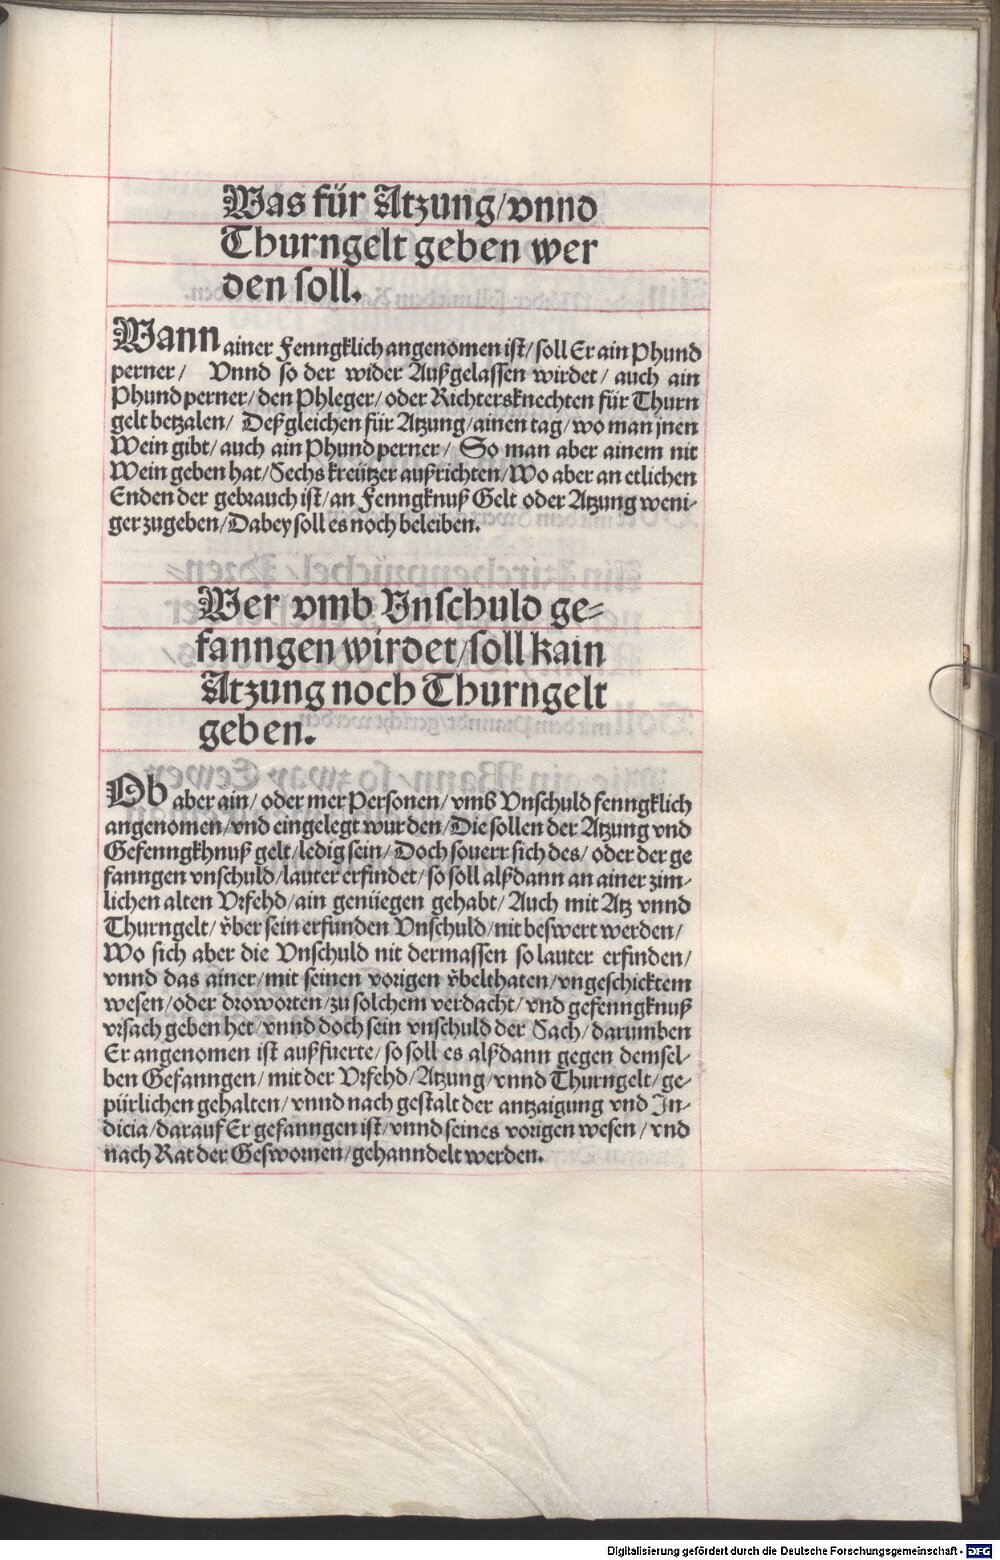 Was für Atzung/vnnd
Thurngelt geben wer
den soll.
Wann ainer Fenngklich angenomen ist/soll Er ain Phund
perner/ Vnnd so der wider Außgelassen wirdet/ auch ain
Phund perner/den Phleger/oder Richtersknechten für Thurn
gelt betzalen/ Deßgleichen für Atzung/ainen tag/wo man jnen
Wein gibt/auch ain Phund perner/ So man aber ainem nit
Wein geben hat/Sechs kreützer außrichten/Wo aber an etlichen
Enden der gebrauch ist/an Fenngknuß Gelt oder Atzung weni-
ger zugeben/Dabey soll es noch beleiben.
Wer vmb Vnschuld ge-
fanngen wirdet/soll kain
Atzung noch Thurngelt
geben.
Ob aber ain/oder mer Personen/vmb Vnschuld fenngklich
angenomen/vnd eingelegt wurden/Die sollen der Atzung vnd
Gefenngkhnuß gelt/ledig sein/Doch souerr sich des/oder der ge
fanngen vnschuld/lauter erfindet/so soll alßdann an ainer zim-
lichen alten Vrfehd/ain genüegen gehabt/Auch mit Atz vnnd
Thurngelt/vͤber sein erfunden Vnschuld/nit beswert werden/
Wo sich aber die Vnschuld nit dermassen so lauter erfinden/
vnnd das ainer/mit seinen vorigen vͤbelthaten/vngeschicktem
wesen/oder droworten/zu solchem verdacht/vnd gefenngknuß
vrsach geben het/vnnd doch sein vnschuld der Sach/darumben
Er angenomen ist außfuerte/so soll es alßdann gegen demsel-
ben Gefanngen/mit der Vrfehd/Atzung/vnnd Thurngelt/ge-
pürlichen gehalten/vnnd nach gestalt der antzaigung vnd In-
dicia/darauf Er gefanngen ist/vnnd seines vorigen wesen/vnd
nach Rat der Geswornen/gehanndelt werden.
Digitalisierung gefördert durch die Deutsche Forschungsgemeinschaft - DFG